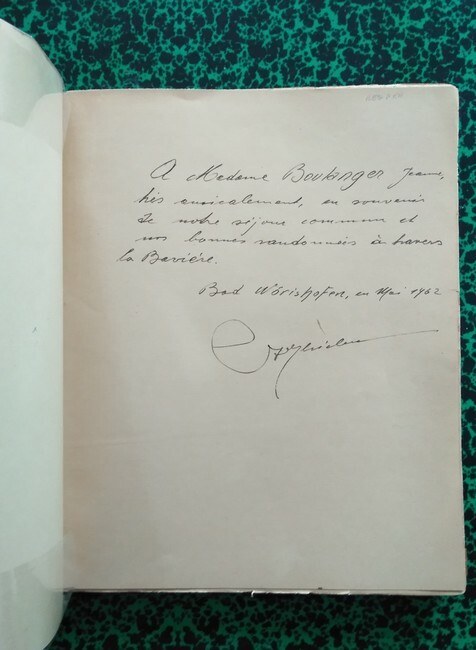 A Madame Boulanger Jeanne,
très amicalement, en souvenir
de notre séjour commun et
nos bonnes randonnées à travers
la Bavière.
Bad Wörishofen, en Mai 1962